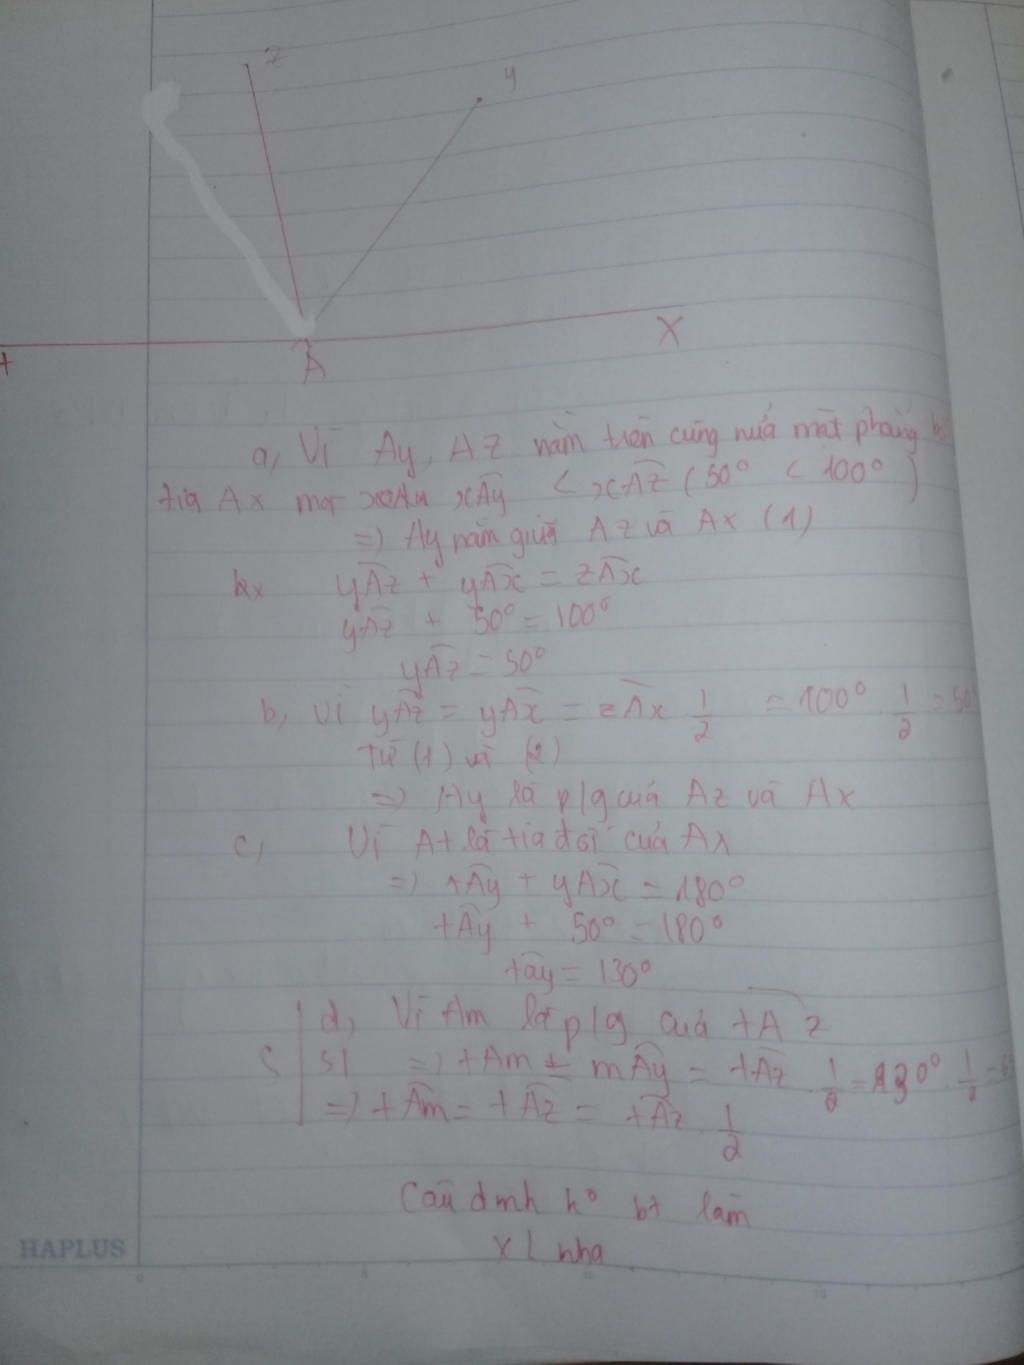 z
y
t
A
X
a, Vì Ay, AZ nằm trên cùng nửa mặt phẳng bờ
tia Ax mà xAy < xAz (50° < 100°)
=) Ay nằm giữa Az và Ax (1)
yAz + yAx = zAx
yAz + 50° = 100°
yAz = 50°
b, Vì yAz = yAx = zAx 1/2 = 100° . 1/2 = 50
Từ (1) và (2)
=) Ay là p/g của Az và Ax
c, Vì At là tia đối của Ax
=) tAy + yAx = 180°
tAy + 50° = 180°
tay = 130°
d, Vì Am là p/g của tAz
S SI =) tAm = mAy = tAz . 1/2 = 130° . 1/2 =
=) tAm = tAz = tAz . 1/2
Câu d mh k° bt làm
XL nha
HAPLUS
0 5 10 15